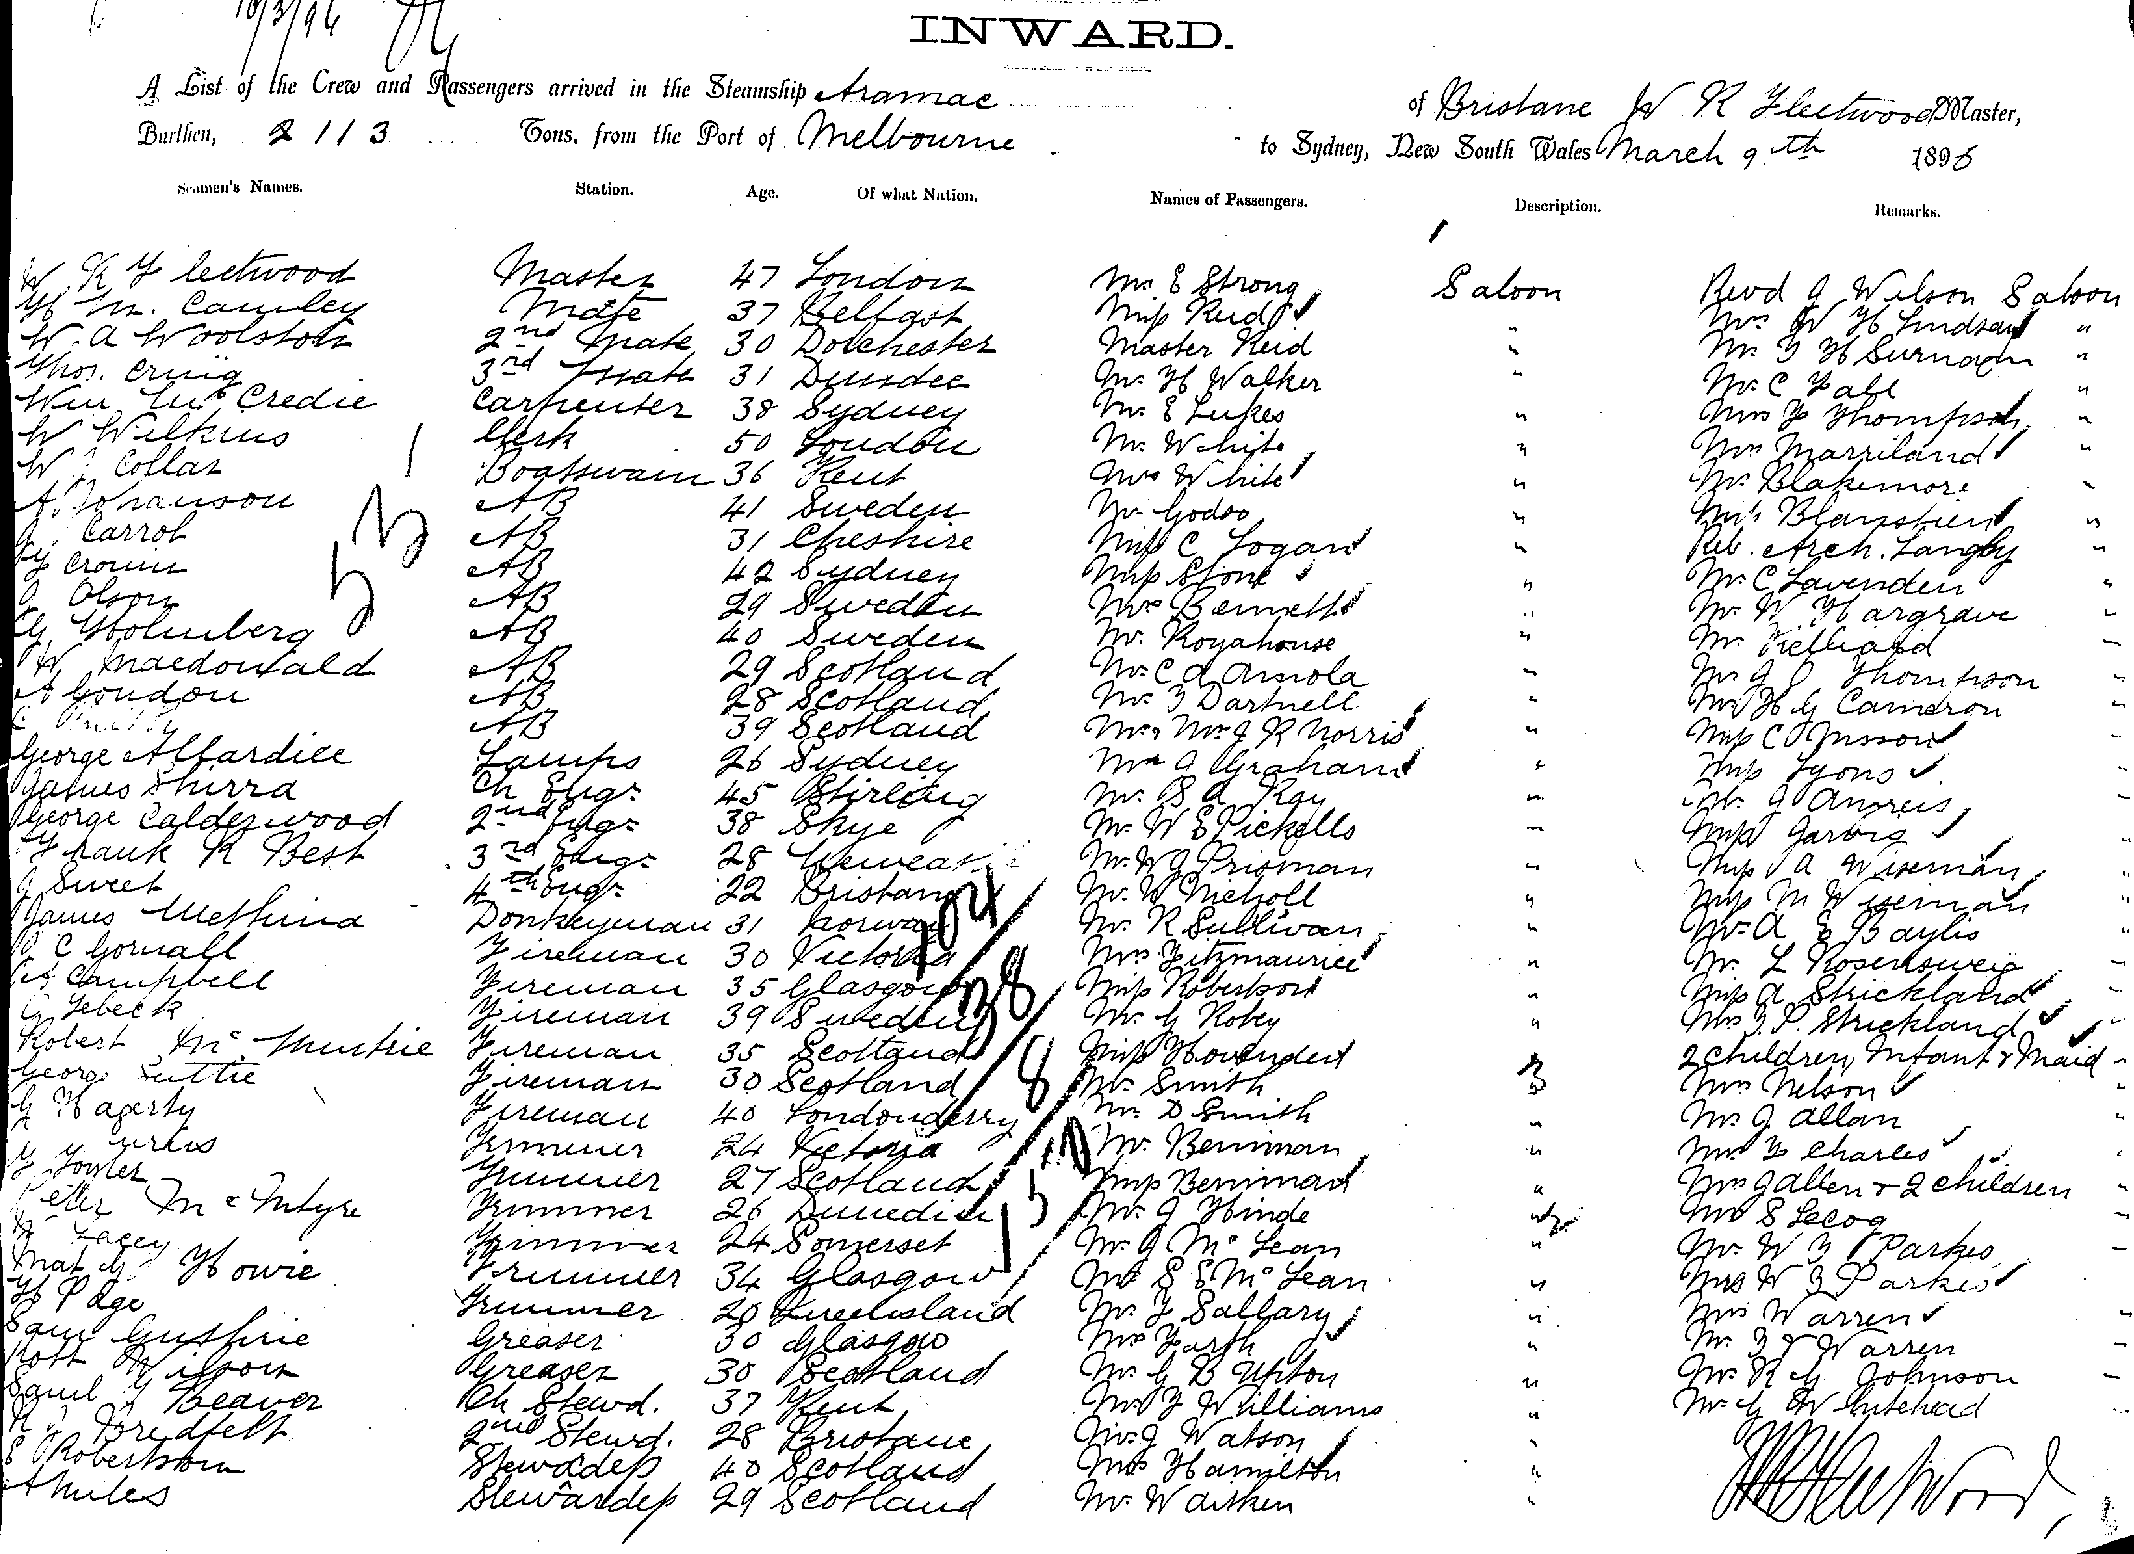 10/3/96
INWARD.
A List of the Crew and Passengers arrived in the Steamship Aramac of Brisbane W R Fleetwood Master,
Burthen, 2113 Tons, from the Port of Melbourne to Sydney, New South Wales March 9th 1896
Seamen's Names. Station. Age. Of what Nation. Names of Passengers. Description. Remarks.
W R Fleetwood Master 47 London Mr E Strong Saloon Revd J Wilson Saloon
H M. Camley Mate 37 Belfast Miss Reid " Mrs W H Lindsay "
W. A Woolston 2nd Mate 30 Dolchester Master Reid " Mr "
Thos. Craig 3rd Mate 31 Dundee Mr H Walker " Mr C "
Wm McCredie Carpenter 38 Sydney Mr E Lukes " Mrs F Thompson "
W Wilkins Clerk 50 London Mr White " Mrs Marriland "
W J Collar Boatswain 36 Kent Mrs White " Mr Blakemore "
A. Johanson AB 41 Sweden Mr " Miss "
J Carrol AB 31 Cheshire Miss C Logan " Arch. Langby "
Cronin AB 42 Sydney Miss Stone " Mr C Lavenden "
O Olson AB 29 Sweden Mrs Bennett " Mr W Hargrave "
G Holmberg AB 40 Sweden Mr. Royahouse " Mr "
W Macdonald AB 29 Scotland Mr C A Arnola " Mr J Thompson "
A Gondon AB 28 Scotland Mr F Dartnell " Mr H G Cameron "
AB 39 Scotland Mr, Mrs J R Norris " Miss C "
George Allardice Lamps 26 Sydney Mrs J Graham " Miss Lyons
James Shirra Ch Engr 45 Stirling Mr. B A Ray " J
George Calderwood 2nd Engr 38 Skye Mr W E Pickells " Miss
Frank R Best 3rd Engr 28 Mr W J Prisman " Miss A Wiseman
J Sweet 4th Engr 22 Brisbane Mr. W Nicholl " Miss M Wiseman
James Methina Donkeyman 31 Norway Mr R Sullivan " Mr A E Baylis "
C Gornall Fireman 30 Victoria Mrs Fitzmaurice " Mr L Rosensweig "
A Campbell Fireman 35 Glasgow Miss Robertson " Miss A Strickland "
C Lebeck Fireman 39 Sweden Mr G Robey " Mrs F. P. Strickland
Robert Mc Fireman 35 Scotland Miss Hovenden 2 Children, Infant & Maid "
George Suttie Fireman 30 Scotland Mr. Smith " Mrs Nelson "
G Hagerty Fireman 40 Londonderry Mr D Smith " Mr J Allan "
Trimmer 24 Victoria Mr. Berriman " Mrs F Charles "
Trimmer 27 Scotland Miss Berriman " Mrs J Allen & 2 children "
Peter McIntyre Trimmer 26 Dunedin Mr. J Hinde " Mr S Lecog
Lacey Trimmer 24 Somerset Mr. J McLean " Mr. W F Parkes "
Mat G Howie Trimmer 34 Glasgow E McLean " Mrs W F Parkes
H Page Trimmer 20 Queensland Mr. F Sallary " Mrs Warren "
Saml Guthrie Greaser 30 Glasgow Mrs Firth " Mr. F Warren "
Robt Wilson Greaser 30 Scotland Mr. G B Upton " Mr. R G Johnson "
Saml G Beaver Ch Stewd. 37 Kent Mr F Williams " Mr. G Whitehead
Bredfelt 2nd Stewd. 28 Brisbane Mr. J Watson "
E Robertson Stewardess 40 Scotland Mrs Hamilton "
A Miles Stewardess 29 Scotland Mr. W Aitken "